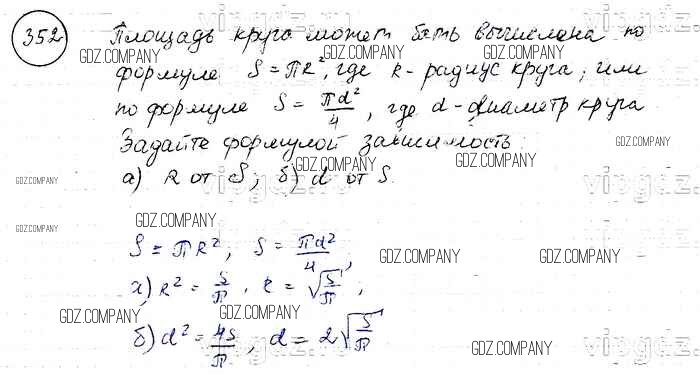 352 Площадь круга может быть вычислена по
формуле S = πR², где R - радиус круга, или
по формуле S = πd²/4, где d - диаметр круга
Задайте формулой зависимость:
а) R от S; б) d от S.
S = πR², S = πd²/4,
а) R² = S/π, R = √(S/π);
б) d² = 4S/π, d = 2√(S/π)
GDZ.COMPANY
GDZ.COMPANY
GDZ.COMPANY
GDZ.COMPANY
GDZ.COMPANY
GDZ.COMPANY
GDZ.COMPANY
GDZ.COMPANY
GDZ.COMPANY
GDZ.COMPANY
GDZ.COMPANY
GDZ.COMPANY
GDZ.COMPANY
GDZ.COMPANY